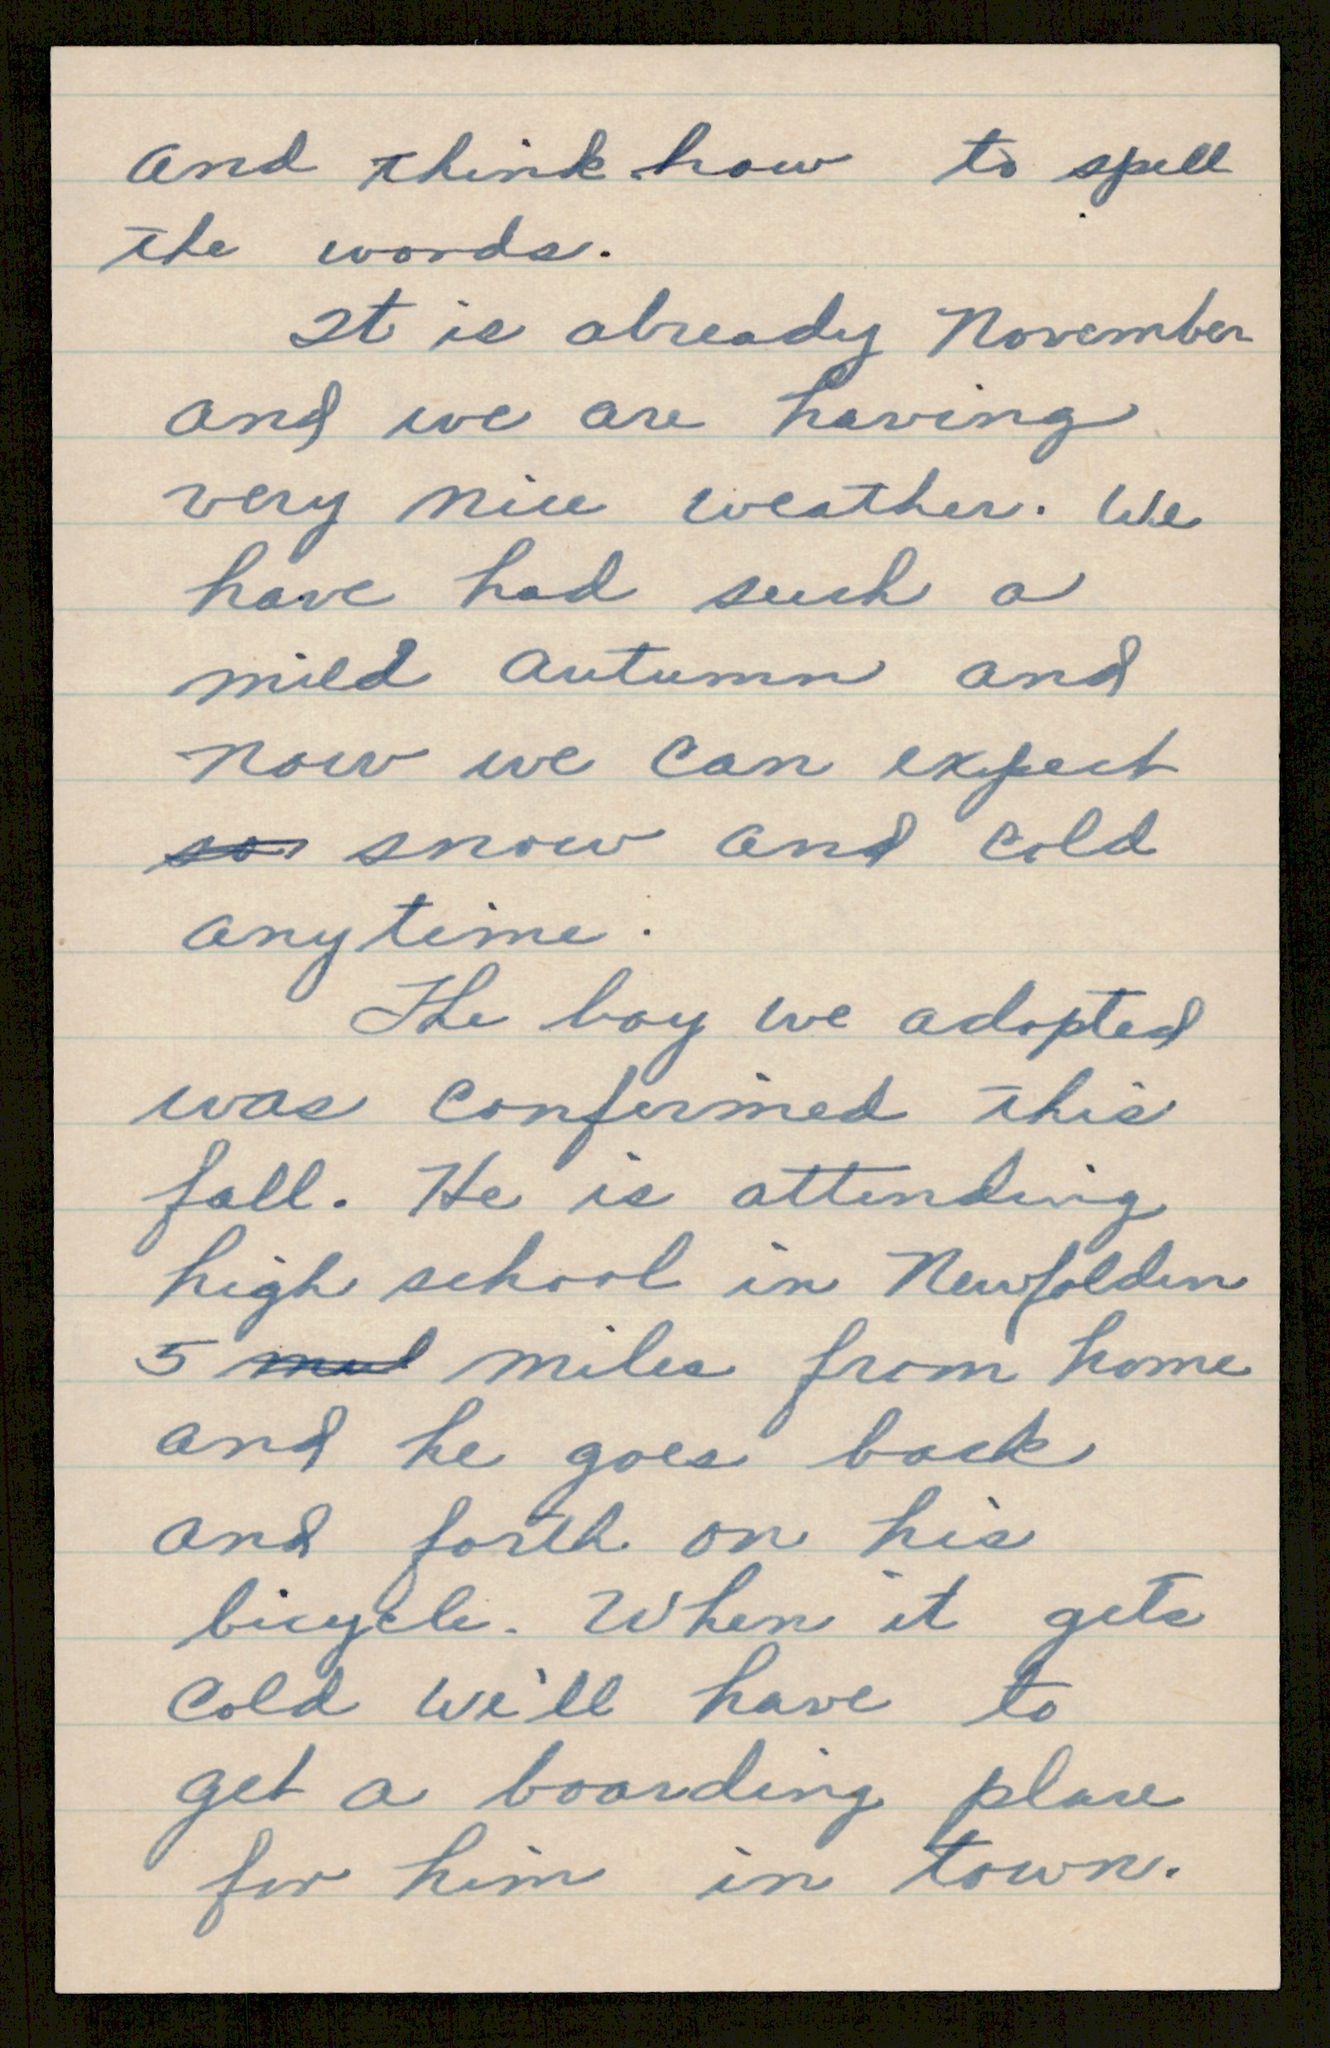 and think how to spell
the words.
It is already November
and we are having
very nice weather. We
have had such a
mild autumn and
now we can expect
so snow and cold
anytime.
The boy we adopted
was confirmed this
fall. He is attending
high school in Newfolden
5 miles from home
and he goes back
and forth on his
bicycle. When it gets
cold we'll have to
get a boarding place
for him in town.